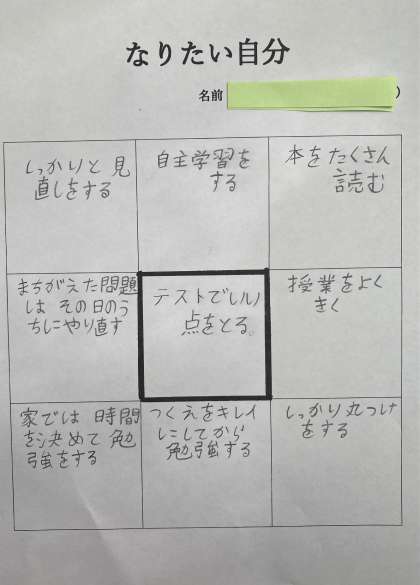 なりたい自分
名前 )
しっかりと見
直しをする
自主学習を
する
本をたくさん
読む
まちがえた問題
は その日のう
ちにやり直す
テストでいい
点をとる。
授業をよく
きく
家では 時間
を決めて 勉
強をする
つくえをキレイ
にしてから
勉強する
しっかり丸つけ
をする